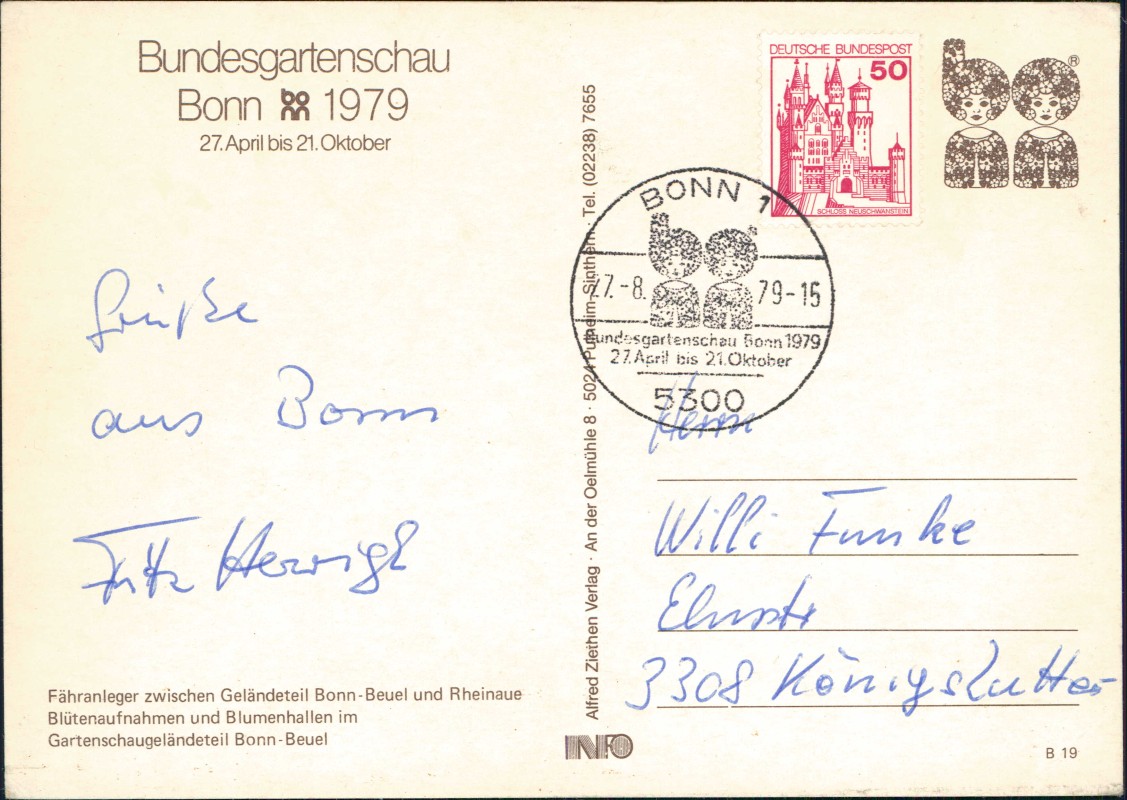 Bundesgartenschau
Bonn bonn 1979
27. April bis 21. Oktober
Grüße
aus Bonn
Fritz Herwigt
Fähranleger zwischen Geländeteil Bonn-Beuel und Rheinaue
Blütenaufnahmen und Blumenhallen im
Gartenschaugeländeteil Bonn-Beuel
Alfred Ziethen Verlag · An der Oelmühle 8 · 5024 Pulheim-Sinthern · Tel. (02238) 7655
INFO
DEUTSCHE BUNDESPOST
50
SCHLOSS NEUSCHWANSTEIN
®
BONN 1
27.-8. 79-15
Bundesgartenschau Bonn 1979
27. April bis 21. Oktober
5300
Herrn
Willi Funke
3308 Königslutter
B 19